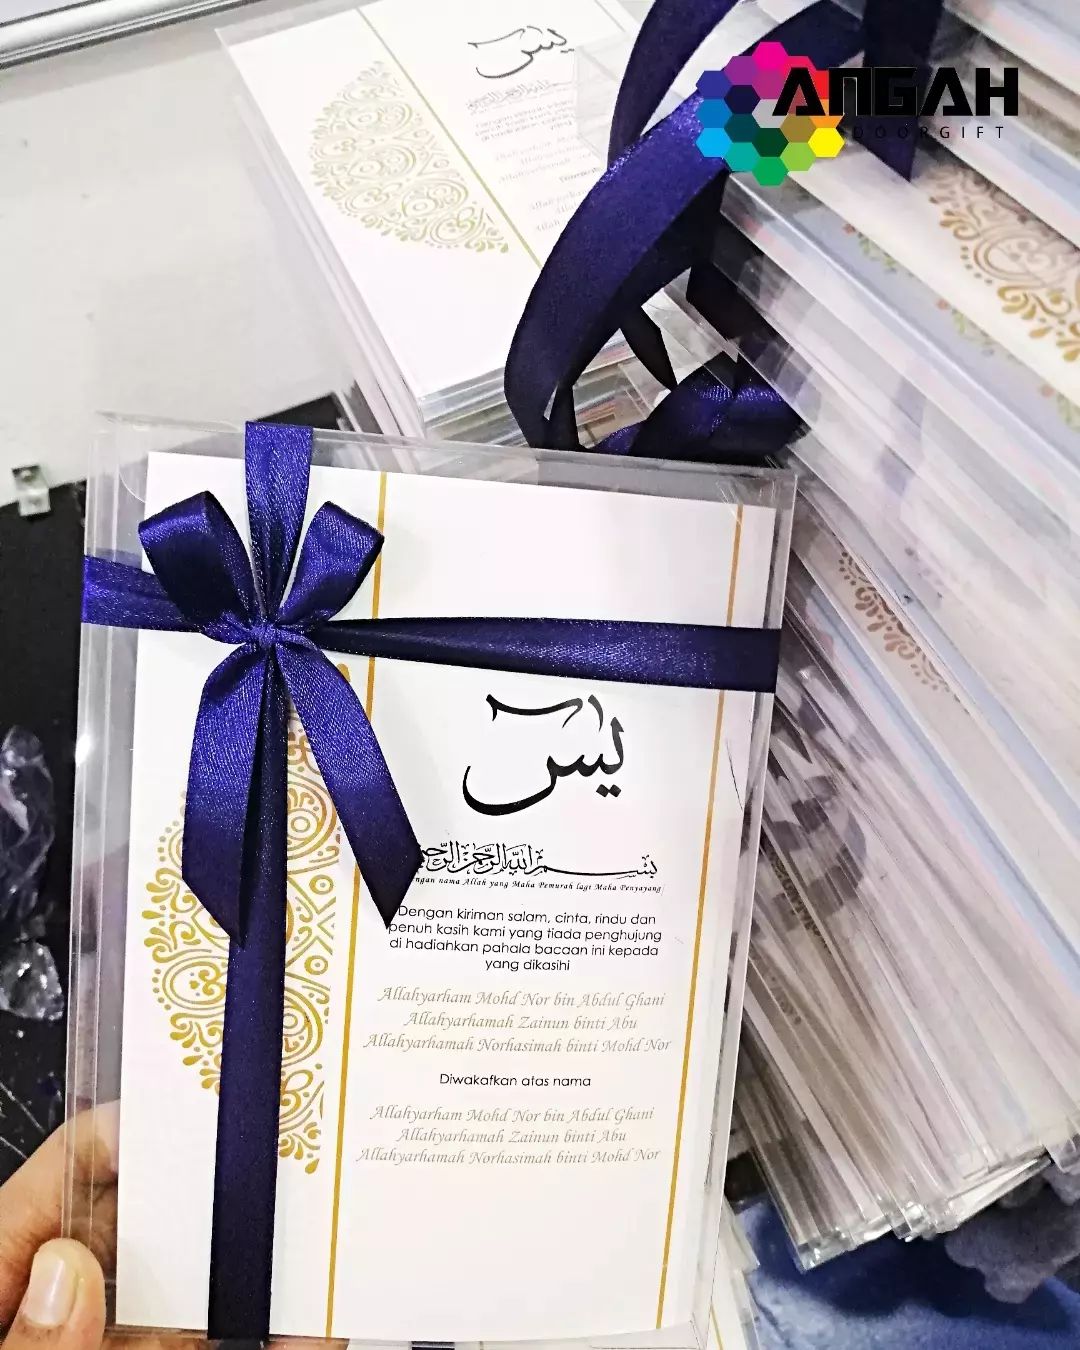 ANGAH
DOORGIFT
يس
يس
بسم الله الرحمن الرحيم
ngan nama Allah yang Maha Pemurah lagi Maha Penyayang
Dengan kiriman salam, cinta, rindu dan
penuh kasih kami yang tiada penghujung
di hadiahkan pahala bacaan ini kepada
yang dikasihi
Allahyarham Mohd Nor bin Abdul Ghani
Allahyarhamah Zainun binti Abu
Allahyarhamah Norhasimah binti Mohd Nor
Diwakafkan atas nama
Allahyarham Mohd Nor bin Abdul Ghani
Allahyarhamah Zainun binti Abu
Allahyarhamah Norhasimah binti Mohd Nor